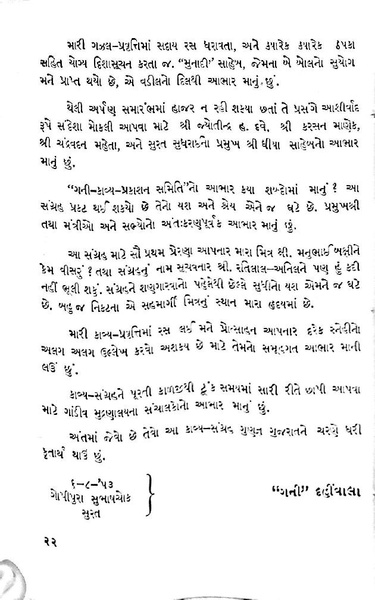 મારી ગઝલ-પ્રવૃત્તિમાં સદાય રસ ધરાવતા, અને ક્યારેક ક્યારેક ઠપકા
સહિત યોગ્ય દિશાસૂચન કરતા જ. "મુનાદી" સાહેબ, જેમના બે બોલનો સુયોગ
મને પ્રાપ્ત થયો છે, એ વડીલનો દિલથી આભાર માનું છું.
થેલી અર્પણ સમારંભમાં હાજર ન રહી શક્યા છતાં તે પ્રસંગે આશીર્વાદ
રૂપે સંદેશા મોકલી આપવા માટે શ્રી જ્યોતીન્દ્ર હ. દવે, શ્રી કરસન માણેક,
શ્રી ચંદ્રવદન મહેતા, અને સુરત સુધરાઈના પ્રમુખ શ્રી ધીયા સાહેબનો આભાર
માનું છું.
"ગની-કાવ્ય-પ્રકાશન સમિતિ"નો આભાર કયા શબ્દોમાં માનું? આ
સંગ્રહ પ્રકટ થઈ શક્યો છે તેનો યશ અને શ્રેય એને જ ઘટે છે. પ્રમુખશ્રી
તથા મંત્રીઓ અને સભ્યોનો અંતઃકરણપૂર્વક આભાર માનું છું.
આ સંગ્રહ માટે સૌ પ્રથમ પ્રેરણા આપનાર મારા મિત્ર શ્રી. મનુભાઈ બક્ષીને
કેમ વીસરું? તથા સંગ્રહનું નામ સૂચવનાર શ્રી. રતિલાલ-અનિલને પણ હું કદી
નહીં ભૂલી શકું. સંગ્રહને શણગારવાનો પહેલેથી છેલ્લે સુધીનો યશ એમને જ ઘટે
છે. બહુ જ નિકટના એ સહમાર્ગી મિત્રનું સ્થાન મારા હૃદયમાં છે.
મારી કાવ્ય-પ્રવૃત્તિમાં રસ લઈ મને પ્રોત્સાહન આપનાર દરેક સ્નેહીનો
અલગ અલગ ઉલ્લેખ કરવો અશક્ય છે માટે તેમનો સમૂહગત આભાર માની
લઉં છું.
કાવ્ય-સંગ્રહને પૂરતી કાળજીથી ટૂંક સમયમાં સારી રીતે છાપી આપવા
માટે ગાંડીવ મુદ્રણાલયના સંચાલકોનો આભાર માનું છું.
અંતમાં જેવો છે તેવો આ કાવ્ય-સંગ્રહ ગુણજ્ઞ ગુજરાતને ચરણે ધરી
કૃતાર્થ થાઉં છું.
૬-૮-'૫૩
ગોપીપુરા સુભાષચોક
સુરત
"ગની" દહીંવાલા
૨૨